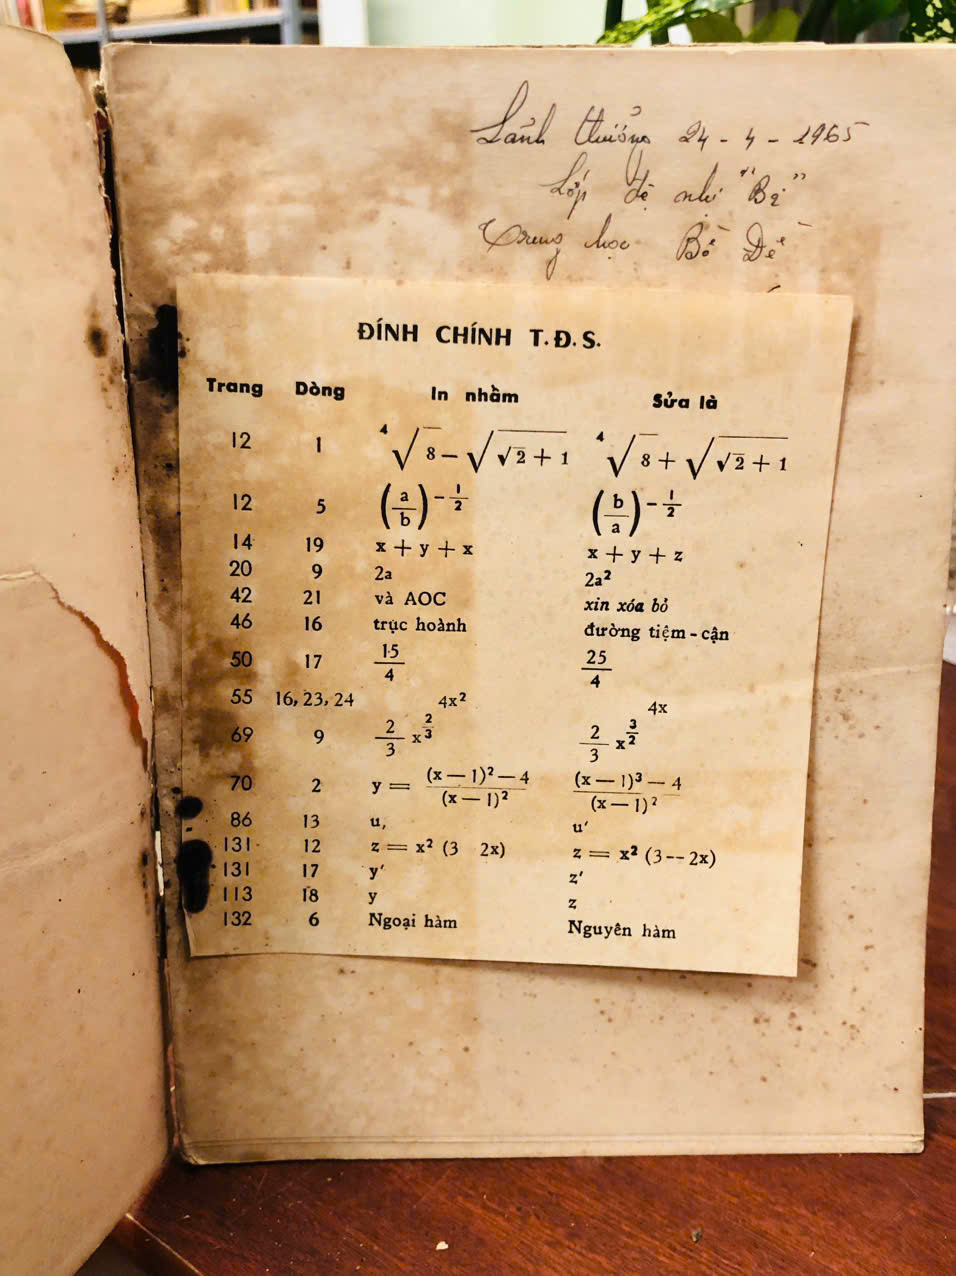 Lãnh thưởng 24 - 4 - 1965
Lớp đệ nhị "B2"
Trung học Bồ Đề
ĐÍNH CHÍNH T.Đ.S.
Trang Dòng In nhầm Sửa là
12 1 ⁴√8 − √(√2 + 1) ⁴√8 + √(√2 + 1)
12 5 (a/b)^(−1/2) (b/a)^(−1/2)
14 19 x + y + x x + y + z
20 9 2a 2a²
42 21 và AOC xin xóa bỏ
46 16 trục hoành đường tiệm - cận
50 17 15/4 25/4
55 16, 23, 24 4x² 4x
69 9 2/3 x^(2/3) 2/3 x^(3/2)
70 2 y = ((x − 1)² − 4)/(x − 1)² ((x − 1)³ − 4)/(x − 1)²
86 13 u, u′
131 12 z = x² (3 2x) z = x² (3 -- 2x)
131 17 y′ z′
113 18 y z
132 6 Ngoại hàm Nguyên hàm